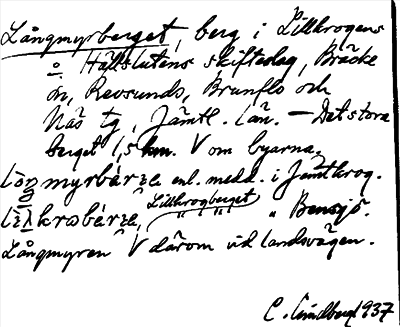 Långmyrberget, berg i Lillkrogens
o. Hållslutens skifteslag, Bräcke
sn, Revsunds, Brunflo och
Näs tg, Jämtl. län. — Det stora
berget 1,5 km. V om byarna.
enl. medd. i Jämtkrog.
Lillkrogberget " " " " Bensjö.
Långmyren V därom vid landsvägen.
C. Lindberg 1937